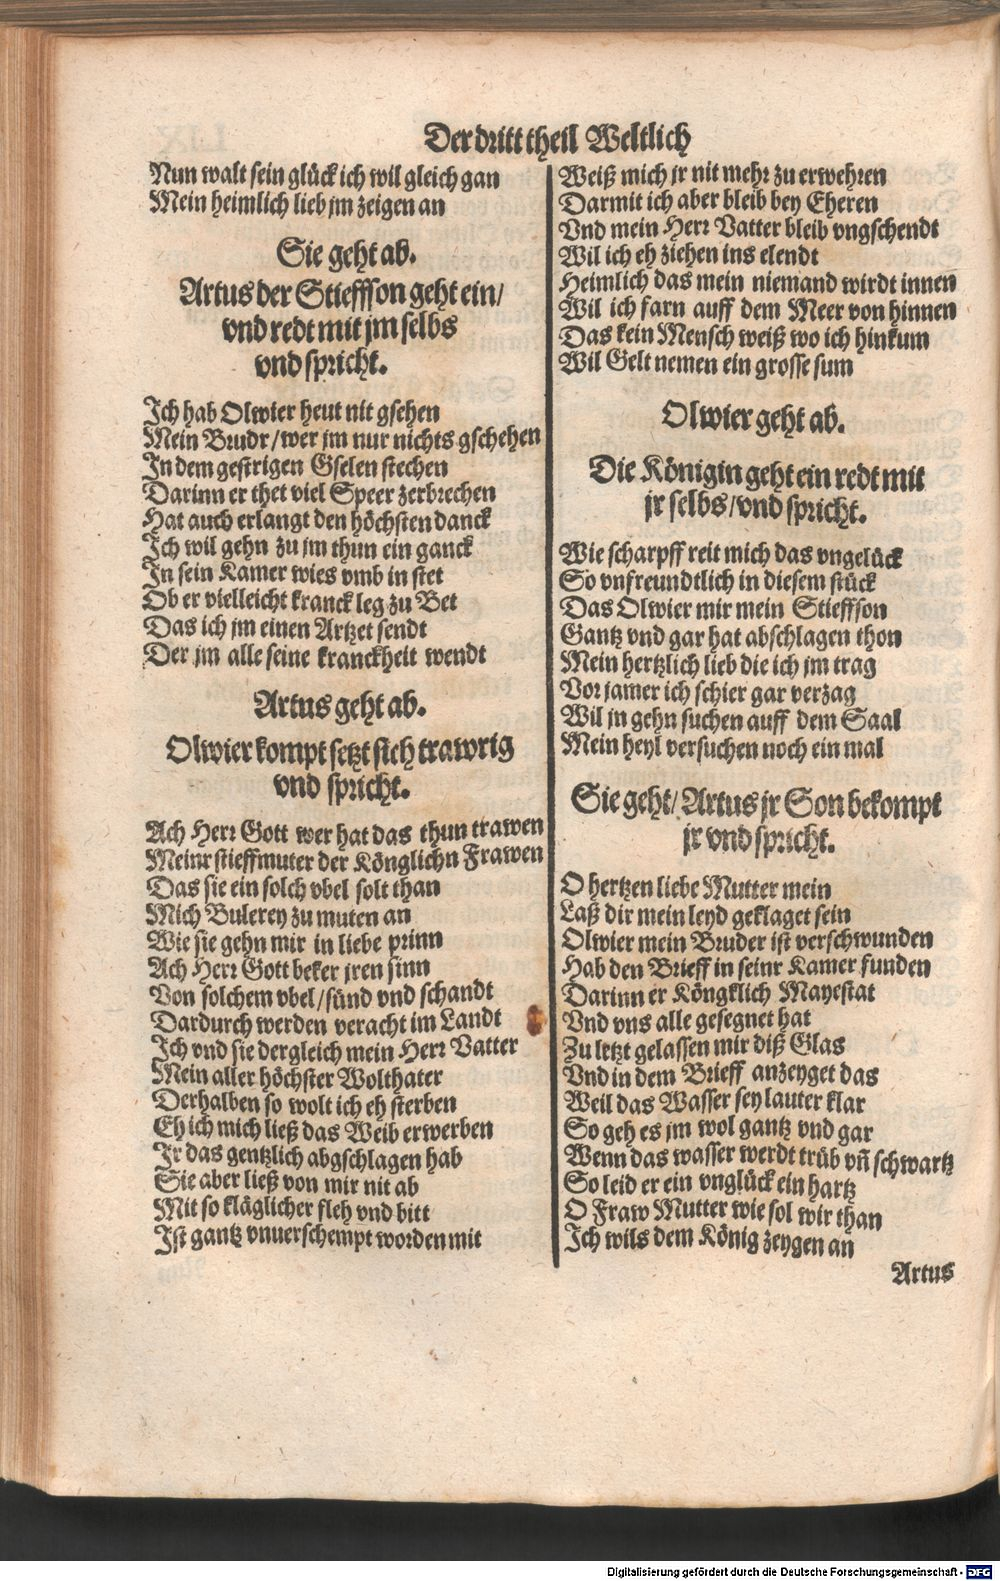 Der dritt theil Weltlich
Nun walt sein glück ich wil gleich gan
Mein heimlich lieb jm zeigen an
Sie geht ab.
Artus der Stieffson geht ein/
vnd redt mit jm selbs
vnd spricht.
Ich hab Olwier heut nit gsehen
Mein Brudr/wer jm nur nichts gschehen
In dem gestrigen Gselen stechen
Darinn er thet viel Speer zerbrechen
Hat auch erlangt den höchsten danck
Ich wil gehn zu jm thun ein ganck
In sein Kamer wies vmb in stet
Ob er vielleicht kranck leg zu Bet
Das ich jm einen Artzet sendt
Der jm alle seine kranckheit wendt
Artus geht ab.
Olwier kompt setzt sich trawrig
vnd spricht.
Ach Herr Gott wer hat das thun trawen
Meinr stieffmuter der Könglichn Frawen
Das sie ein solch vbel solt than
Mich Bulerey zu muten an
Wie sie gehn mir in liebe prinn
Ach Herr Gott beker jren sinn
Von solchem vbel/sünd vnd schandt
Dardurch werden veracht im Landt
Ich vnd sie dergleich mein Herr Vatter
Mein aller höchster Wolthater
Derhalben so wolt ich eh sterben
Eh ich mich ließ das Weib erwerben
Ir das gentzlich abgschlagen hab
Sie aber ließ von mir nit ab
Mit so kläglicher fleh vnd bitt
Ist gantz vnuerschempt worden mit
Weiß mich jr nit mehr zu erwehren
Darmit ich aber bleib bey Eheren
Vnd mein Herr Vatter bleib vngschendt
Wil ich eh ziehen ins elendt
Heimlich das mein niemand wirdt innen
Wil ich farn auff dem Meer von hinnen
Das kein Mensch weiß wo ich hinkum
Wil Gelt nemen ein grosse sum
Olwier geht ab.
Die Königin geht ein redt mit
jr selbs/vnd spricht.
Wie scharpff reit mich das vngelück
So vnfreundtlich in diesem stück
Das Olwier mir mein Stieffson
Gantz vnd gar hat abschlagen thon
Mein hertzlich lieb die ich jm trag
Vor jamer ich schier gar verzag
Wil jn gehn suchen auff dem Saal
Mein heyl versuchen noch ein mal
Sie geht/Artus jr Son bekompt
jr vnd spricht.
O hertzen liebe Mutter mein
Laß dir mein leyd geklaget sein
Olwier mein Bruder ist verschwunden
Hab den Brieff in seinr Kamer funden
Darinn er Köngklich Mayestat
Vnd vns alle gesegnet hat
Zu letzt gelassen mir diß Glas
Vnd in dem Brieff anzeyget das
Weil das Wasser sey lauter klar
So geh es jm wol gantz vnd gar
Wenn das wasser werdt trüb vñ schwartz
So leid er ein vnglück ein hartz
O Fraw Mutter wie sol wir than
Ich wils dem König zeygen an
Artus
Digitalisierung gefördert durch die Deutsche Forschungsgemeinschaft - DFG